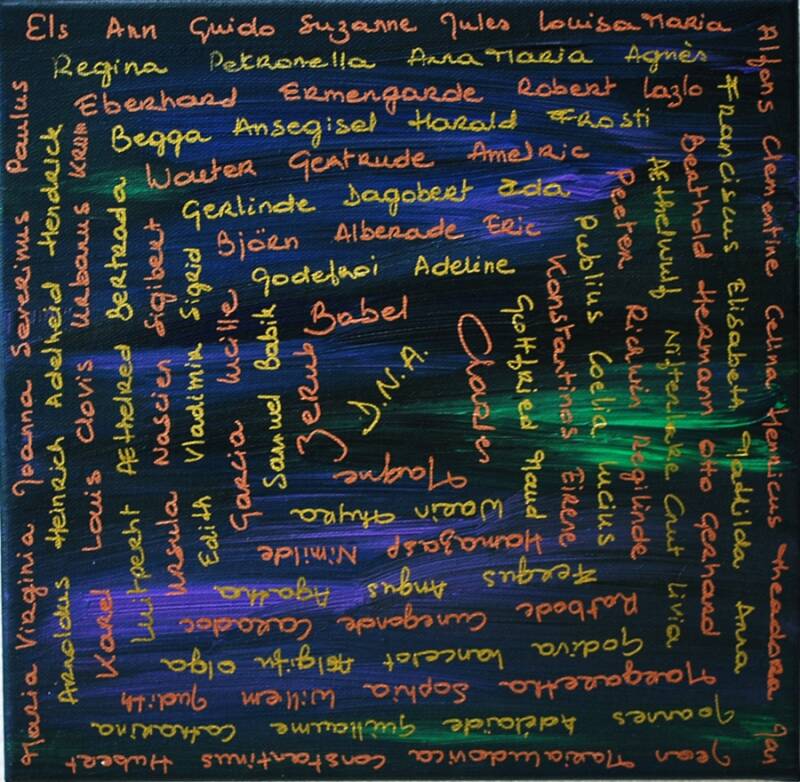 Els Ann Guido Suzanne Jules Louisa Maria
Alfons Clementine Celina Henricus Theodora Jan
Jean Maria Ludovica Constantinus Hubert
Maria Virginia Joanna Severinus Paulus
Regina Petronella Anna Maria Agnès
Franciscus Elisabeth Mathilda Anna
Joannes Adélaïde Guillaume Catharina
Arnoldus Heinrich Adelheid Hendrick
Eberhard Ermengarde Robert Lazlo
Berthold Hermann Otto Gerhard
Margaretha Sophia Willem Judith
Karel Louis Clovis Urbanus Krum
Begga Ansegisel Harald Frosti
Aethelwulf Cnut Livia
Godiva Lancelot Aelgifu Olga
Luitpreht Aethelred Bertrada
Wouter Gertrude Amelric
Peeter Richwin Regilinde
Ratbode Cunegonde Caradoc
Ursula Nascien Sigibert
Gerlinde Dagobert Ida
Publius Coelia Lucius
Feergus Angus Agatha
Edith Vladimir Sigrid
Björn Alberade Eric
Konstantinos Eirene
Hamazasp Nimilde
Garcia Lucille
Godefroi Adeline
Gottfried Maud
Warin Thyra
Samuel Babik
Babel
Charles
Magne
Zerub
D.N.A.